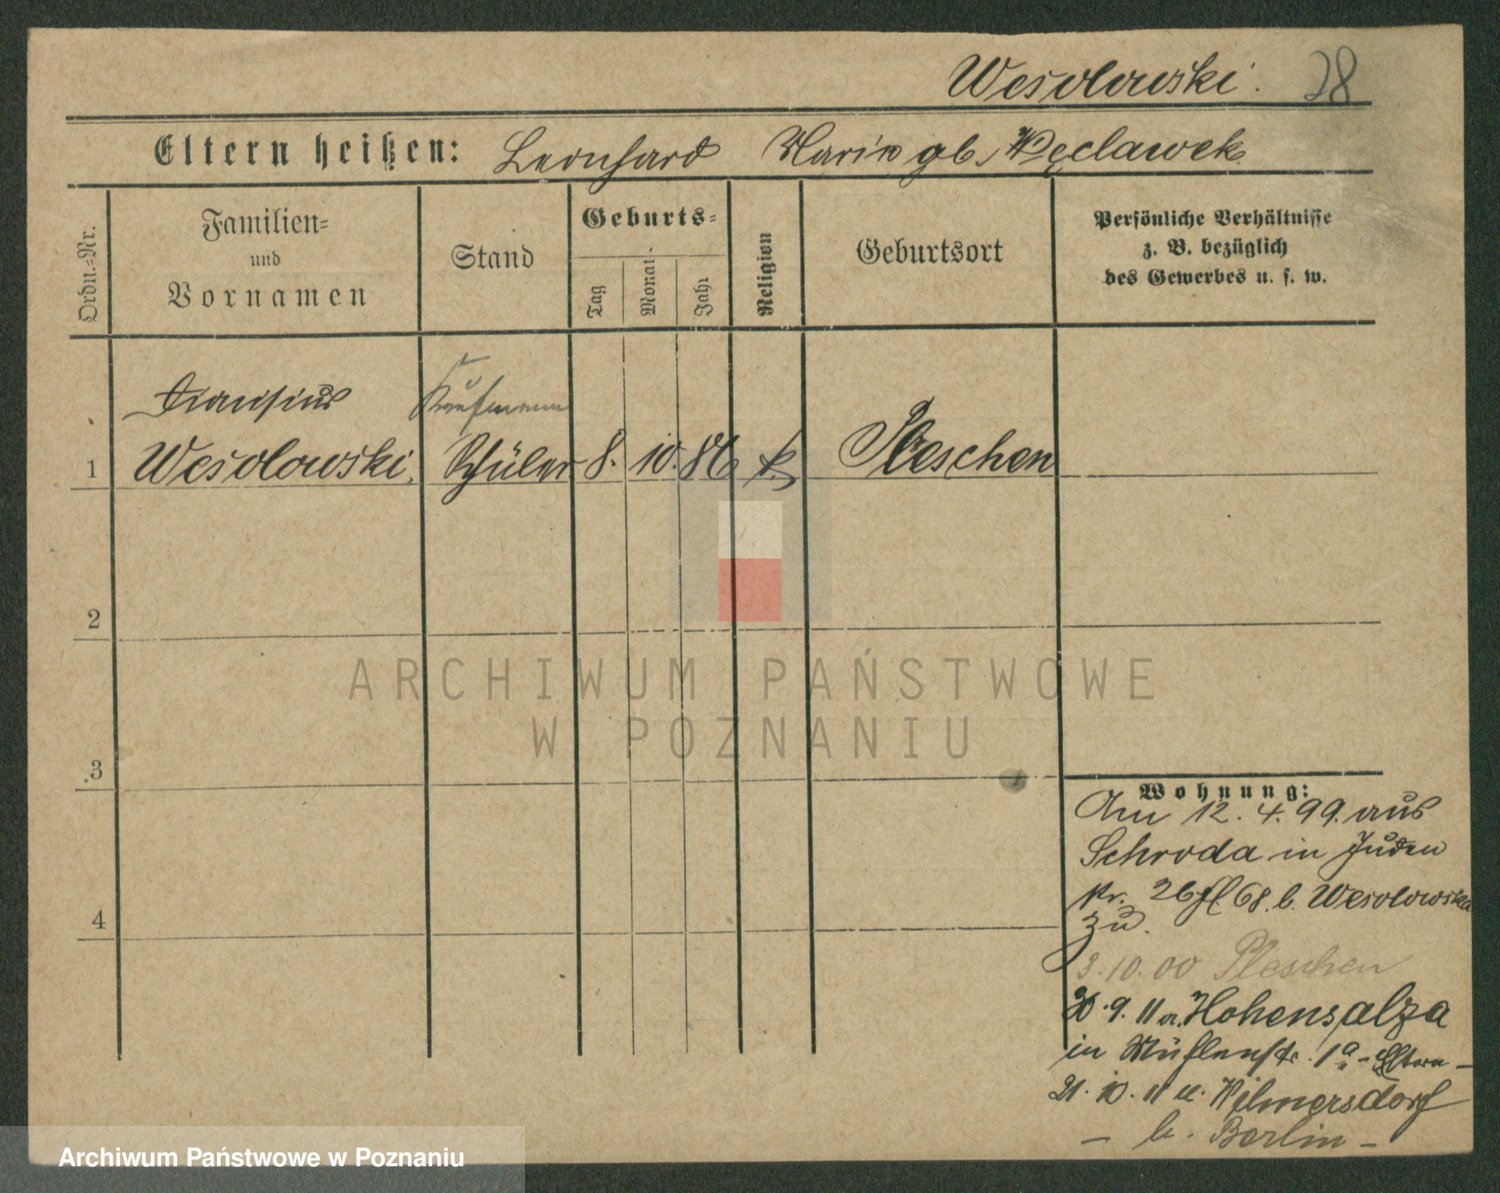 Wesolowski. 28
Eltern heißen: Leonhard Marie gb. Węclawek
Ordn.-Nr.
Familien-
und
Vornamen
Stand
Geburts-
Tag
Monat
Jahr
Religion
Geburtsort
Persönliche Verhältnisse
z. B. bezüglich
des Gewerbes u. s. w.
Dionisius Kaufmann
1 Wesolowski. Schüler 8. 10. 86 k. Pleschen
2
ARCHIWUM PAŃSTWOWE
W POZNANIU
3
Wohnung:
Am 12. 4. 99. aus
Schroda in Juden
str. 26 68. b. Wesolowska
zu.
3.10.00 Pleschen
4
30.9.11 a. Hohensalza
in Mühlenstr. 1a - Eltern -
21.10.11 n. Wilmersdorf
- b. Berlin -
Archiwum Państwowe w Poznaniu